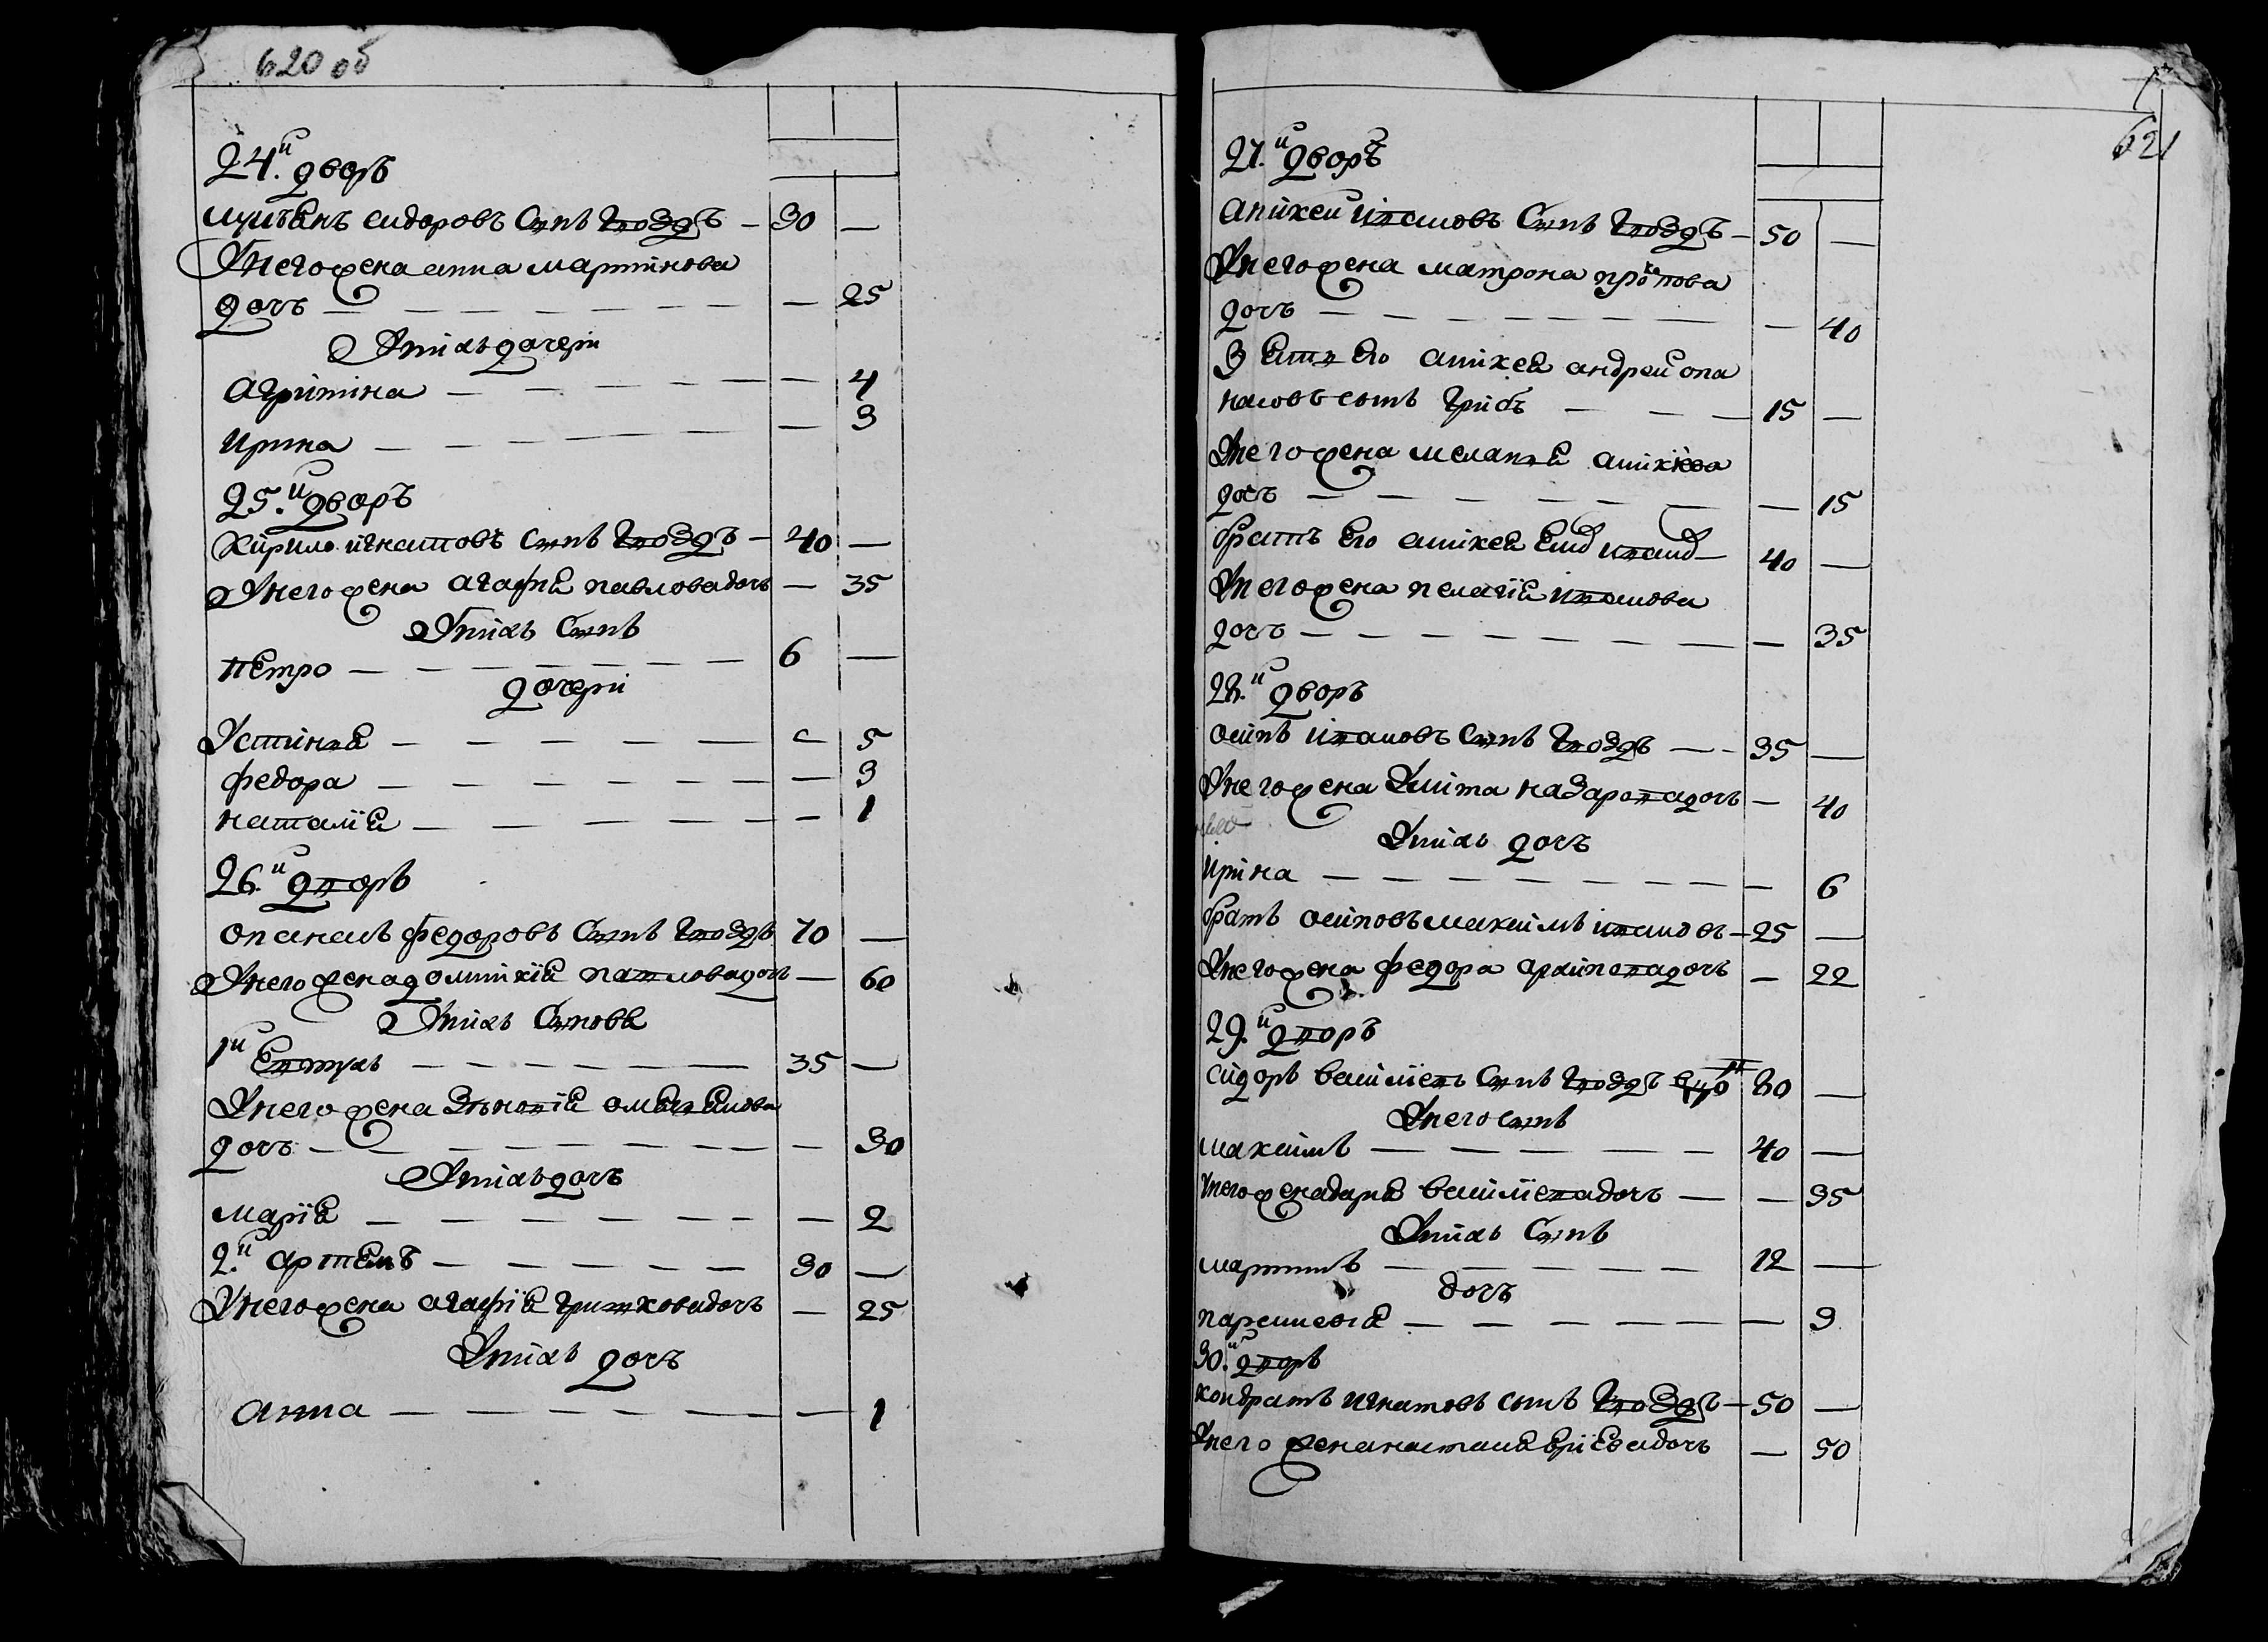 620 об
24.й дворъ
Луцьянъ сидоровъ Сынъ Гвоздъ — 30 —
Унего жена анна мартинова
дочъ — — 25
Унихъ дочери
Агрипина — — 4
Ирина — — 3
25.й дворъ
Кирило игнатовъ Сынъ Гвоздъ — 40 —
Унего жена агафия павлова дочъ — 35
Унихъ Сынъ
петро — 6 —
дочери
Устиния — 5
федора — — 3
наталія — — 1
26.й дворъ
опанасъ федоровъ Сынъ Гвоздъ 70 —
Унего жена домникія павлова дочъ — 60
Унихъ Синове
1й Евтухъ — 35 —
Унего жена Зѣновія
дочъ — — 30
Унихъ дочъ
Марія — — 2
2.й артемъ — 30 —
Унего жена агафія грицкова дочъ — 25
Унихъ дочъ
Анна — — 1
621
27.й дворъ
аникей ивановъ Сынъ Гвоздъ — 50 —
Унего жена матрона прокопова
дочъ — — 40
Зять его аникея андрей опа
насовъ сынъ Грибъ — 15 —
Унего жена мелания аникиева
дочъ — — 15
братъ его аникея — 40 —
Унего жена пелагія иванова
дочъ — — 35
28.й дворъ
осипъ ивановъ Сынъ Гвоздъ — 35 —
Унего жена Улита назарова дочъ — 40
Унихъ дочъ
Ирина — — 6
братъ осиповъ максимъ ивановъ — 25 —
Унего жена федора архипова дочъ — 22
29.й дворъ
сидоръ василіевъ Сынъ Гвоздъ 80 —
Унего сынъ
максимъ — 40 —
Унего жена дария василіева дочъ — — 35
Унихъ Сынъ
мартинъ — 12 —
дочъ
параскевия — — 3
30.й дворъ
кондратъ игнатовъ сынъ Гвоздъ — 50 —
Унего жена настасия дочъ — 50